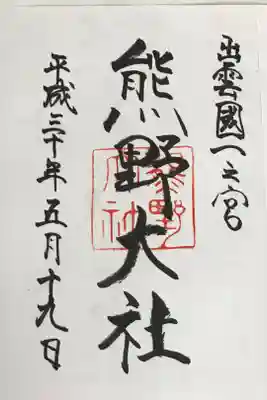 出雲國一之宮
熊野大社
平成三十年五月十九日